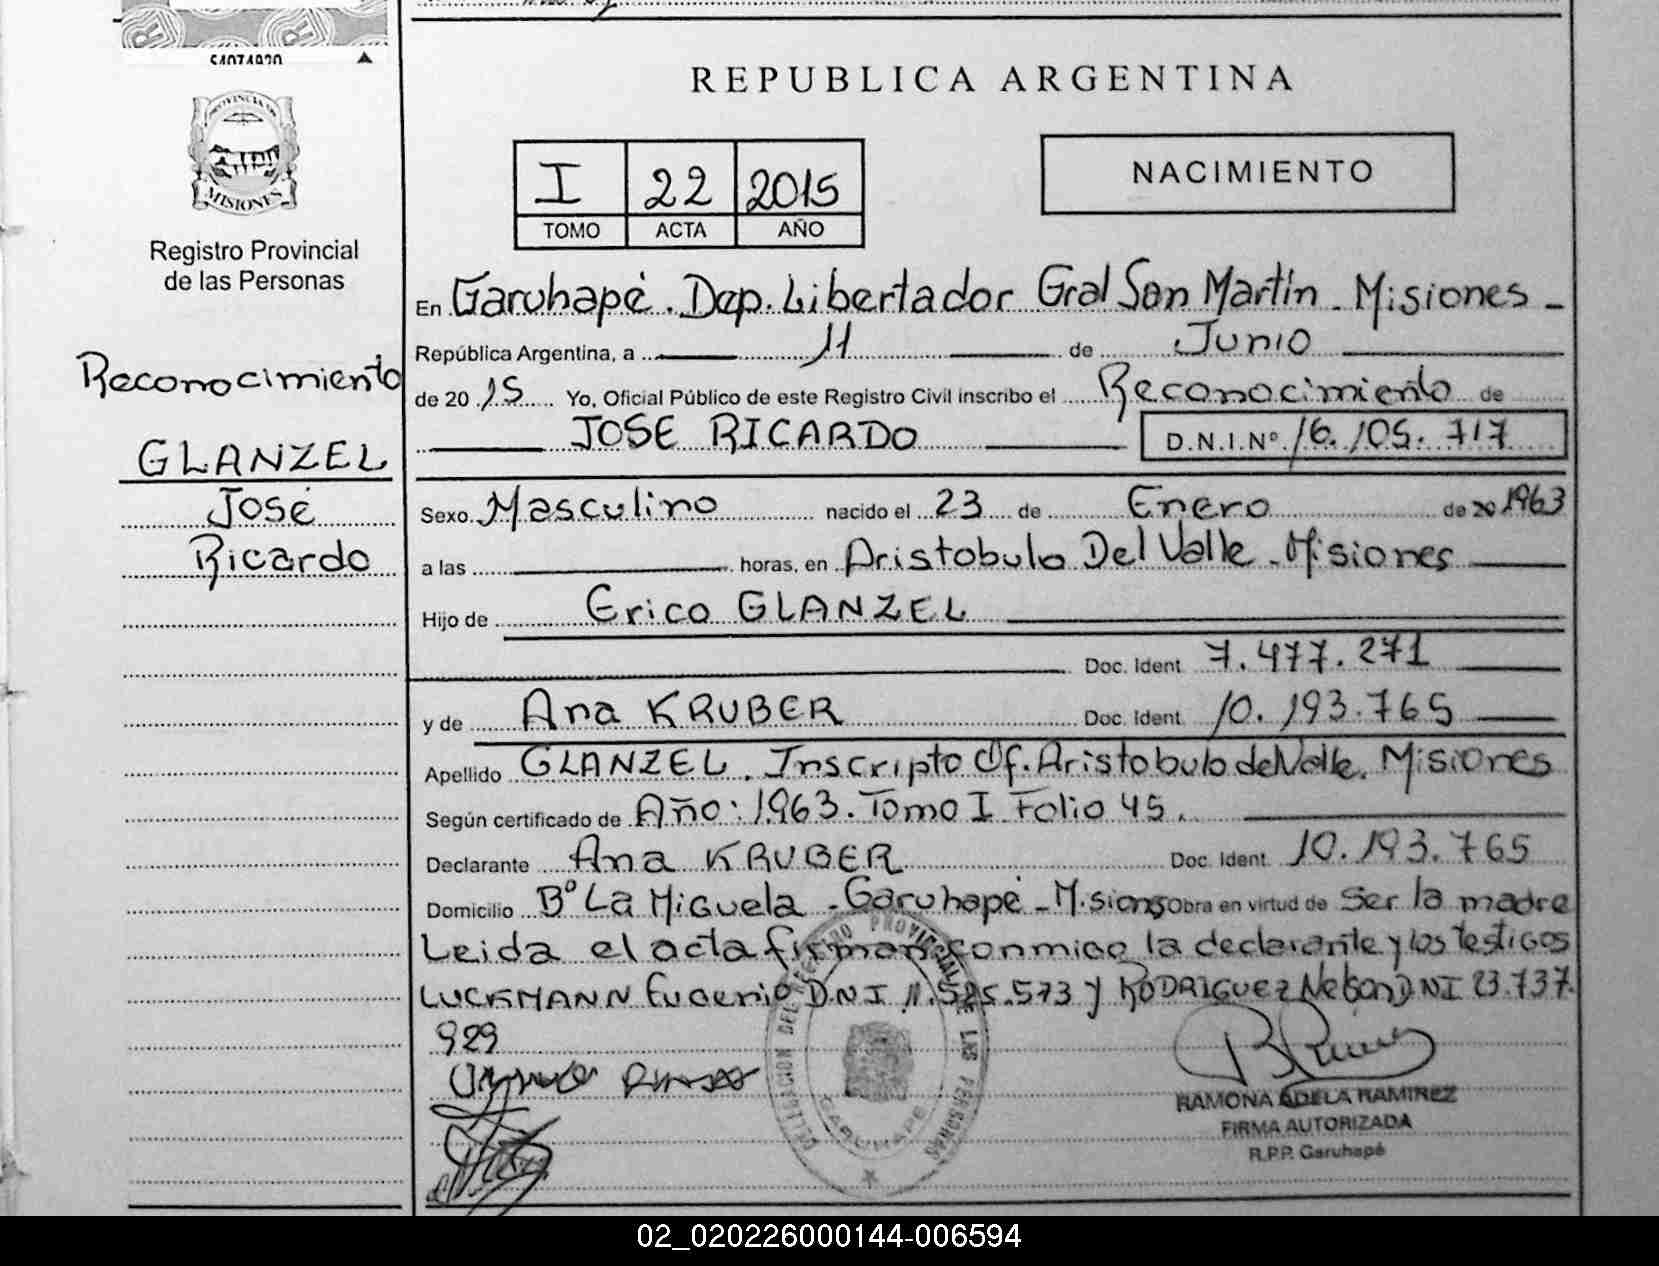 54074920
PROVINCIA DE
MISIONES
Registro Provincial
de las Personas
Reconocimiento
GLANZEL
José
Ricardo
REPUBLICA ARGENTINA
I 22 2015
TOMO ACTA AÑO
NACIMIENTO
En Garuhapé. Dep. Libertador Gral San Martín - Misiones -
República Argentina, a 11 de Junio
de 20 15 Yo, Oficial Público de este Registro Civil inscribo el Reconocimiento de
JOSE RICARDO D.N.I.Nº 16.105.717
Sexo Masculino nacido el 23 de Enero de 20 1963
a las horas, en Aristobulo Del Valle - Misiones
Hijo de Erico GLANZEL
Doc. Ident. 7.477.271
y de Ana KRUBER Doc. Ident. 10.193.765
Apellido GLANZEL. Inscripto Of. Aristobulo del Valle. Misiones
Según certificado de Año: 1963. Tomo I Folio 45.
Declarante Ana KRUBER Doc. Ident. 10.193.765
Domicilio Bº La Miguela - Garuhapé - Misiones Obra en virtud de Ser la madre
Leida el acta firman conmigo la declarante y los testigos
LUCKMANN Eugenio D.N.I 11.585.573 y RODRIGUEZ Nelson DNI 23.737.
929
DELEGACION DEL REGISTRO PROVINCIAL DE LAS PERSONAS
GARUHAPE
RAMONA ADELA RAMIREZ
FIRMA AUTORIZADA
R.P.P. Garuhapé
02_020226000144-006594